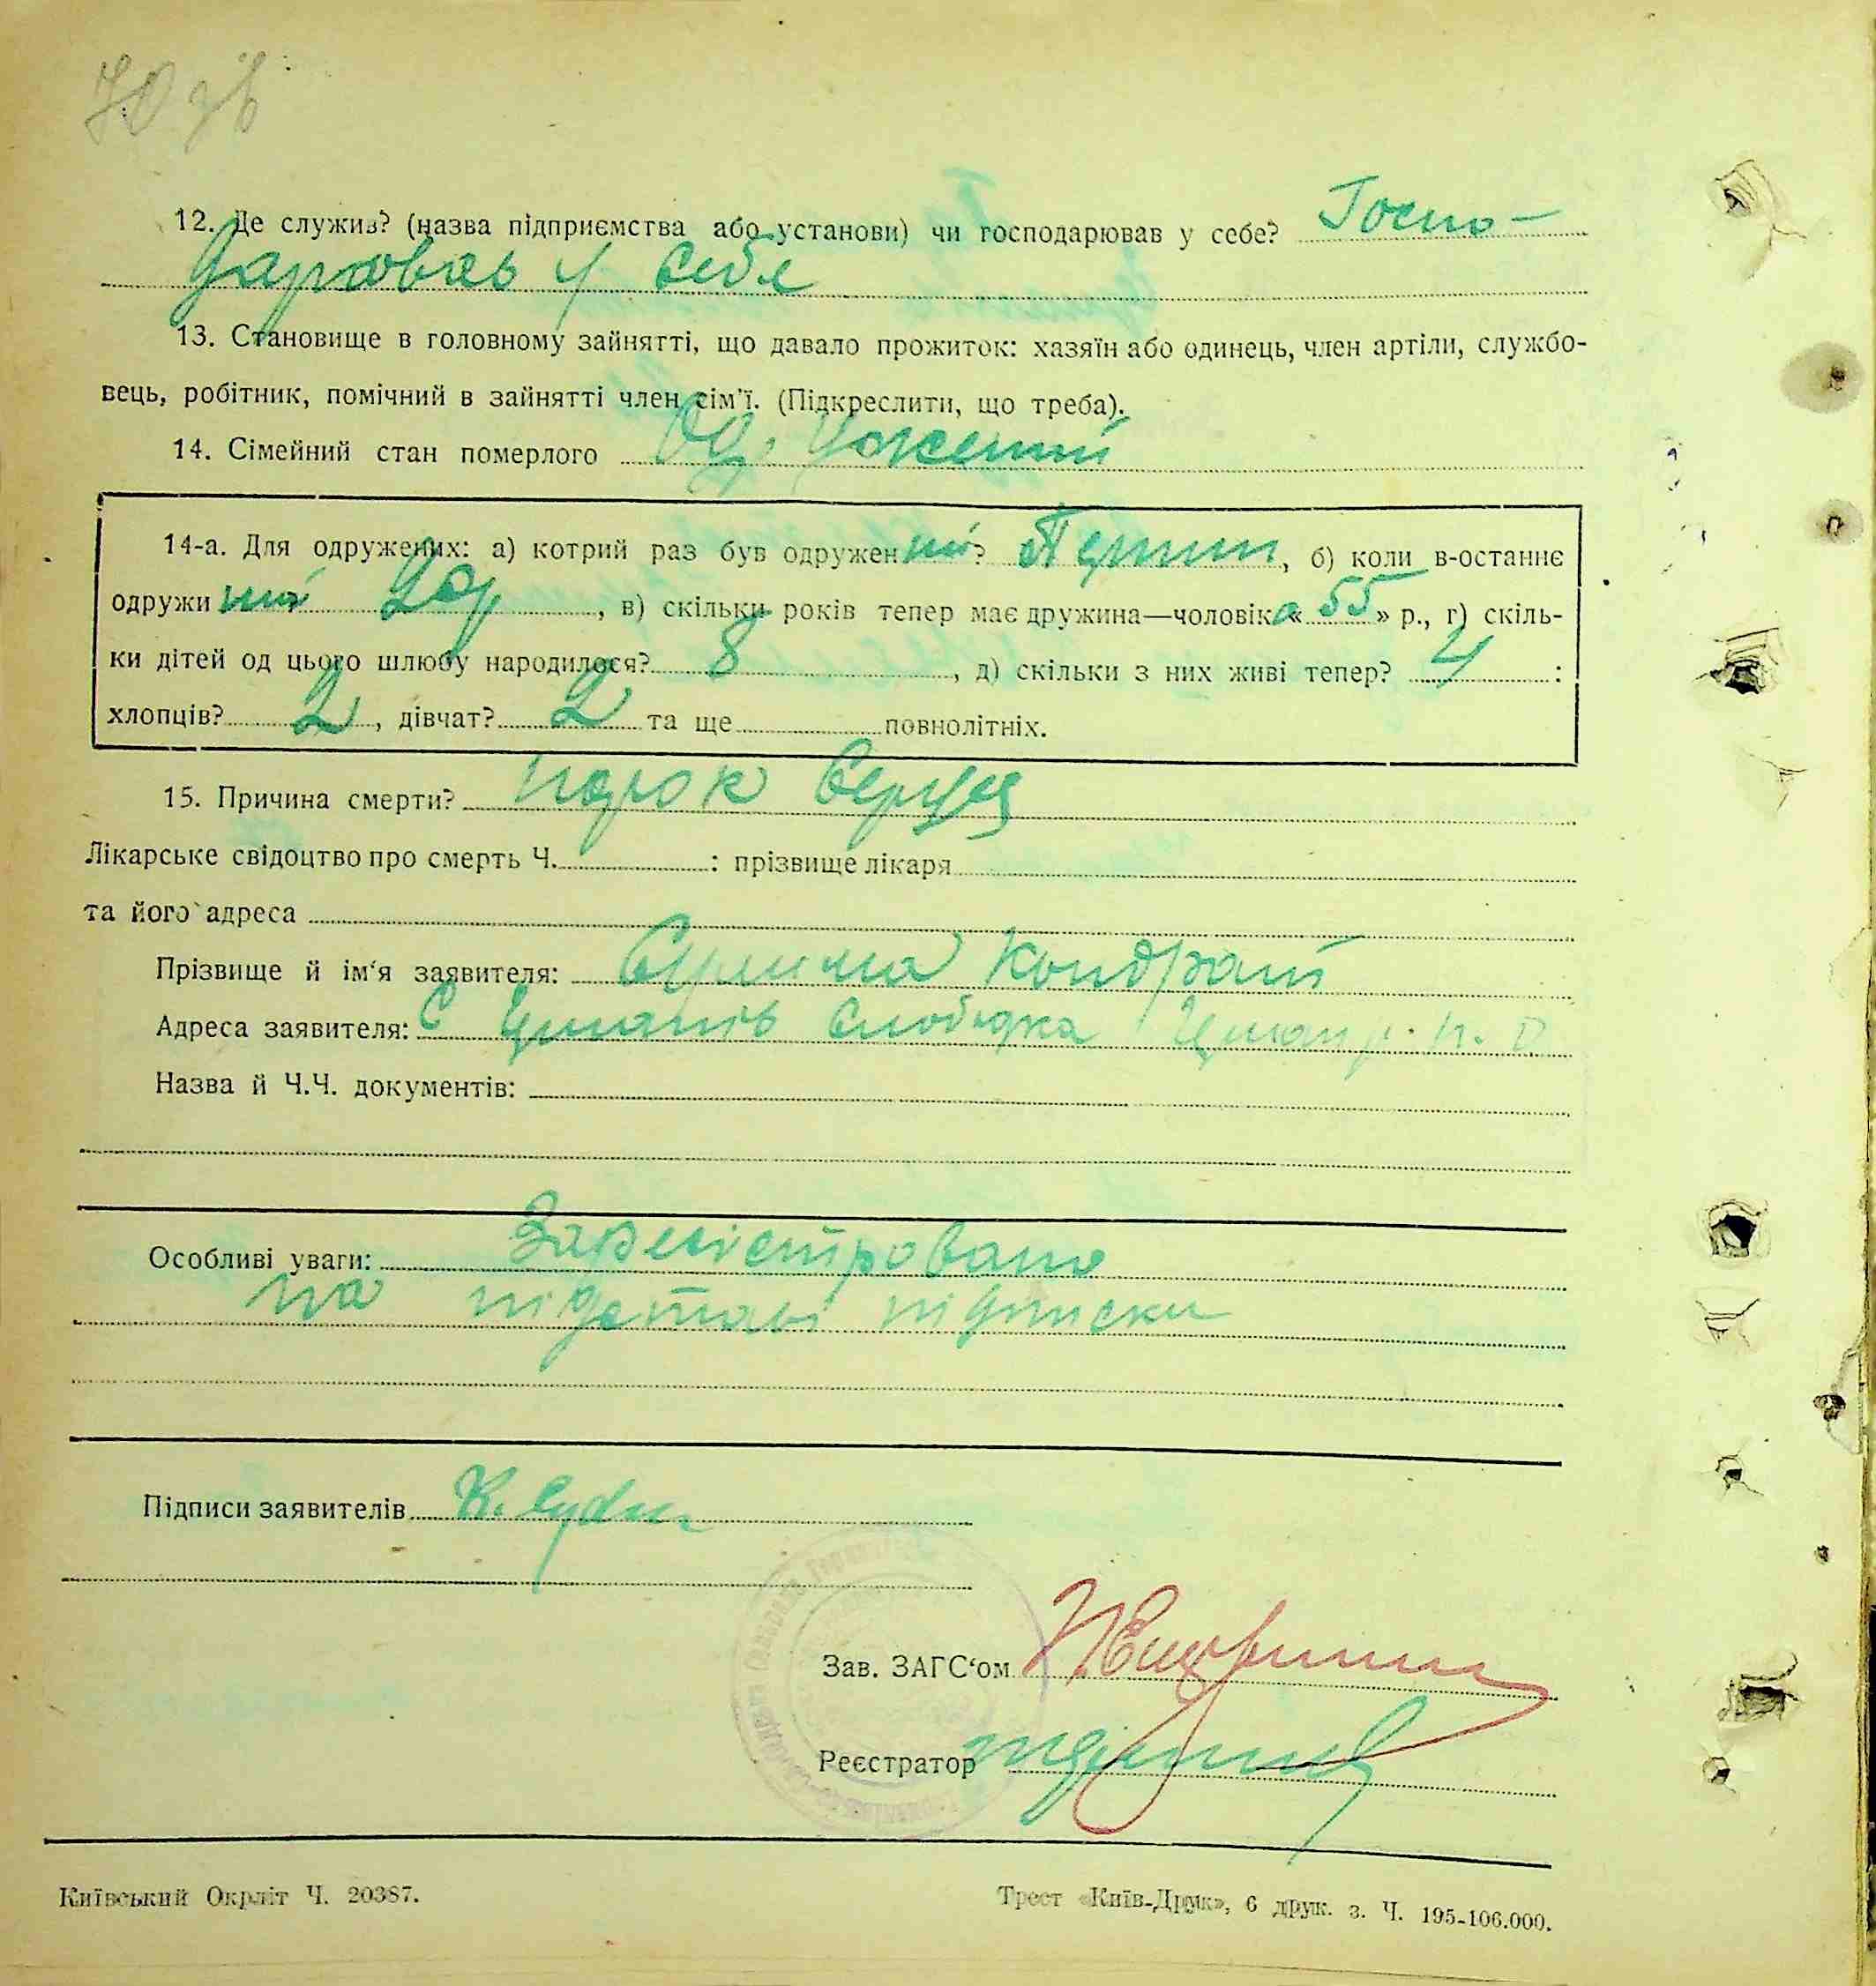 70 зв
12. Де служив? (назва підприємства або установи) чи господарював у себе? Госпо-
дарював у себе
13. Становище в головному зайнятті, що давало прожиток: хазяїн або одинець, член артіли, службо-
вець, робітник, помічний в зайнятті член сім'ї. (Підкреслити, що треба).
14. Сімейний стан померлого Одружений
14-а. Для одружених: а) котрий раз був одружений? Перший, б) коли в-останнє
одружи, в) скільки років тепер має дружина—чоловіка «55» р., г) скіль-
ки дітей од цього шлюбу народилося? 8, д) скільки з них живі тепер? 4:
хлопців? 2, дівчат? 2 та ще повнолітніх.
15. Причина смерти? порок серця
Лікарське свідоцтво про смерть Ч. : прізвище лікаря
та його адреса
Прізвище й ім'я заявителя: Кондрат
Адреса заявителя: С слобідка
Назва й Ч.Ч. документів:
Особливі уваги: Зареєстровано
на підставі підписки
Підписи заявителів К.
Зав. ЗАГС'ом
Реєстратор
Київський Окрліт Ч. 20387.
Трест «Київ-Друк», 6 друк. з. Ч. 195-106.000.